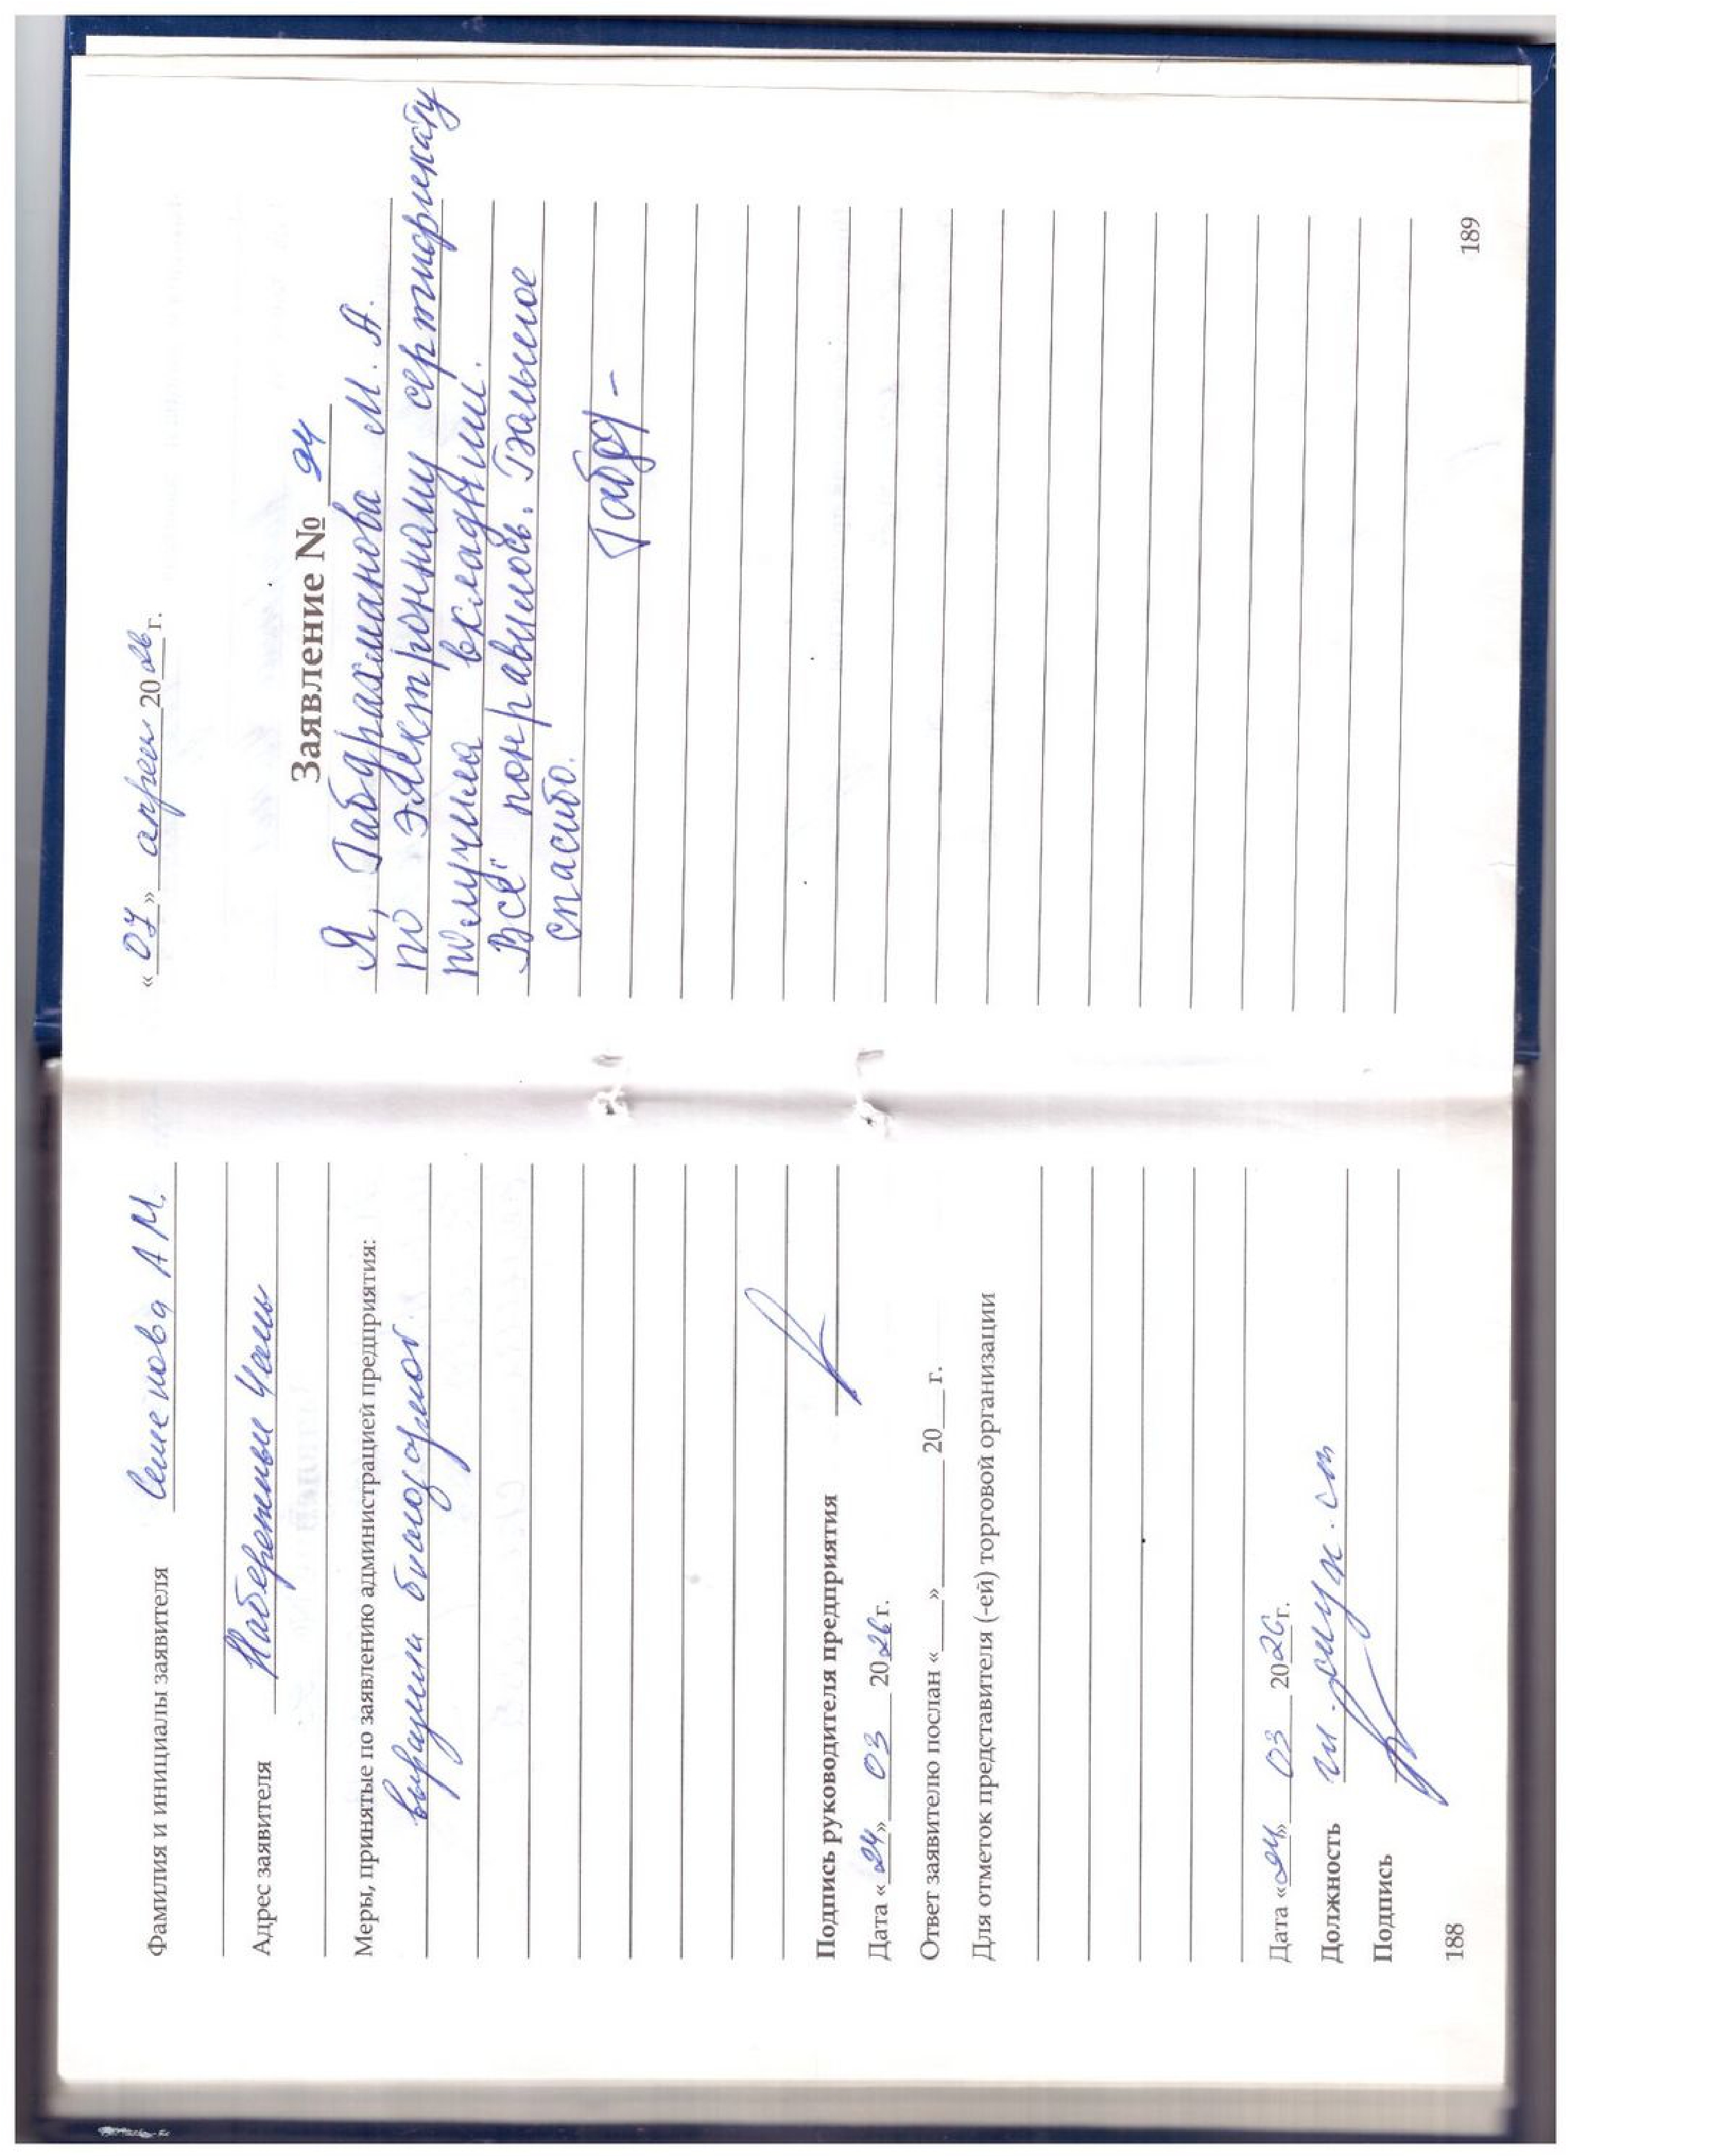 Фамилия и инициалы заявителя Семенова А М.
Адрес заявителя Набережные Челны
Меры, принятые по заявлению администрацией предприятия:
выразили благодарност.
Подпись руководителя предприятия
Дата «24» 03 2026 г.
Ответ заявителю послан «___»________ 20___г.
Для отметок представителя (-ей) торговой организации
Дата «24» 03 2026г.
Должность
Подпись
188
«07» апреля 2026 г.
Заявление № 94
Я, Габдрахманова М. А.
по электронному сертификату
получила вкладыши.
Всё понравилось. Большое
спасибо.
Габдр-
189